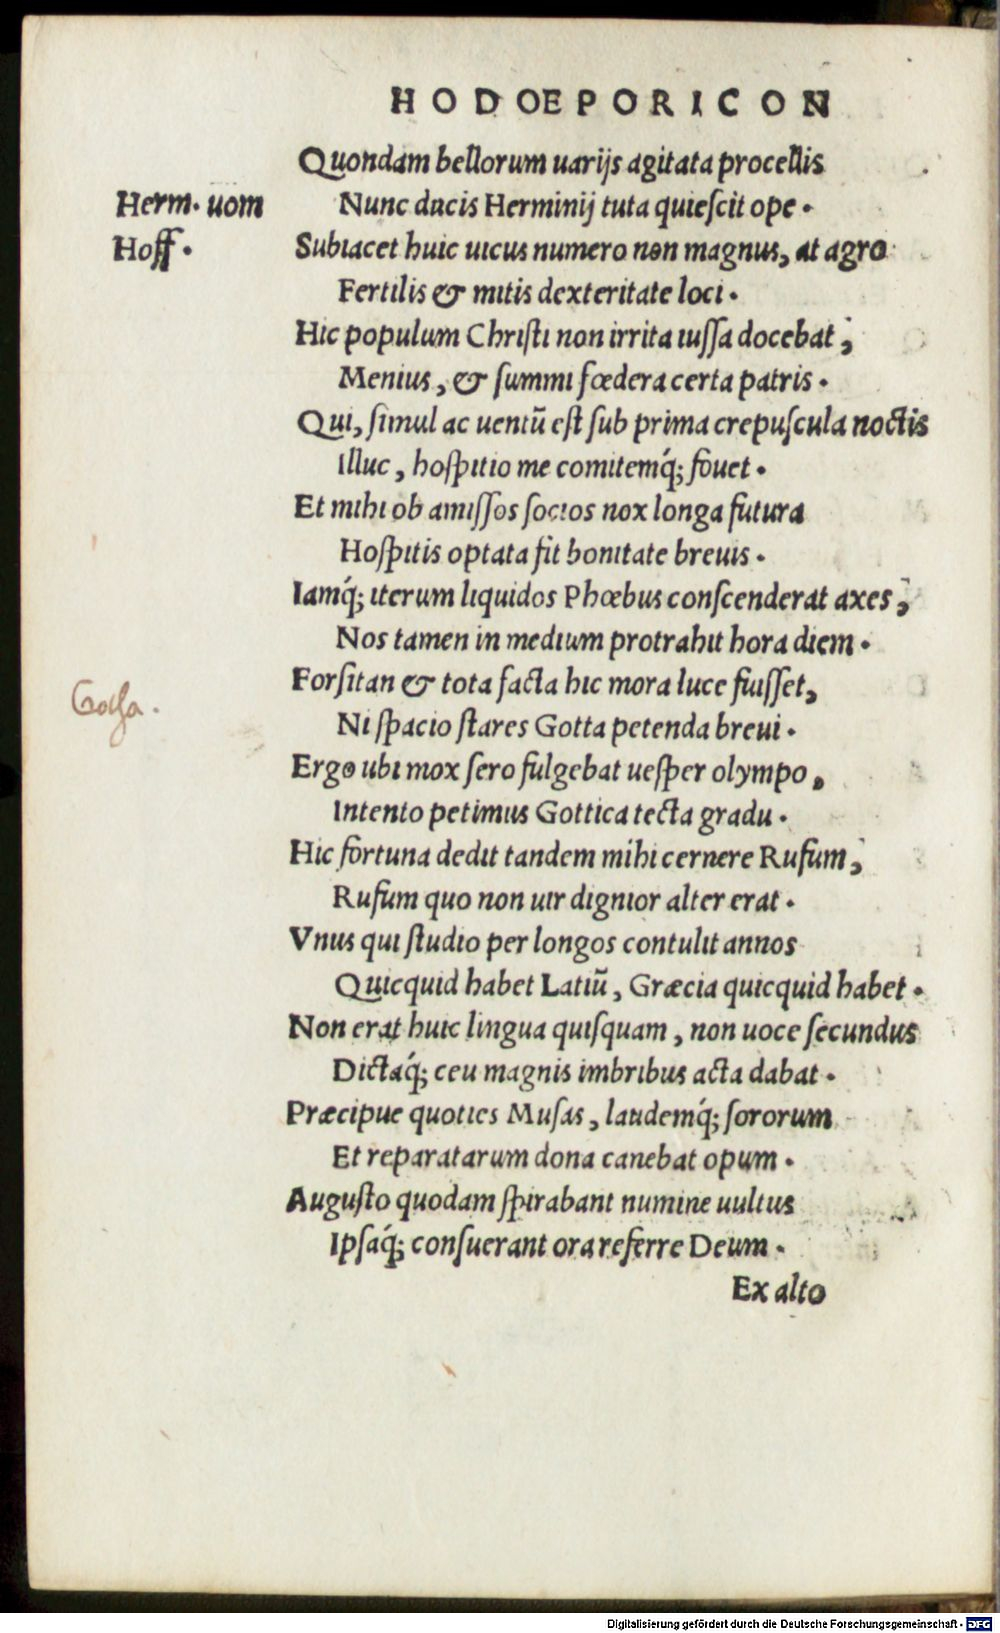 HODOEPORICON
Quondam bellorum uarijs agitata procellis
Herm. uom
Nunc ducis Herminij tuta quieſcit ope.
Hoff.
Subiacet huic uicus numero non magnus, at agro
Fertilis & mitis dexteritate loci.
Hic populum Chriſti non irrita iuſſa docebat,
Menius, & ſummi fœdera certa patris.
Qui, ſimul ac uentũ eſt ſub prima crepuſcula noctis
Illuc, hoſpitio me comitemq́; fouet.
Et mihi ob amiſſos ſocios nox longa futura
Hoſpitis optata fit bonitate breuis.
Iamq́; iterum liquidos Phœbus conſcenderat axes,
Nos tamen in medium protrahit hora diem.
Forſitan & tota facta hic mora luce fuiſſet,
Gotha.
Ni ſpacio ſtares Gotta petenda breui.
Ergo ubi mox ſero fulgebat ueſper olympo,
Intento petimus Gottica tecta gradu.
Hic fortuna dedit tandem mihi cernere Rufum,
Rufum quo non uir dignior alter erat.
Vnus qui ſtudio per longos contulit annos
Quicquid habet Latiũ, Græcia quicquid habet.
Non erat huic lingua quiſquam, non uoce ſecundus
Dictaq́; ceu magnis imbribus acta dabat.
Præcipue quoties Muſas, laudemq́; ſororum
Et reparatarum dona canebat opum.
Auguſto quodam ſpirabant numine uultus
Ipſaq́; conſuerant ora referre Deum.
Ex alto
Digitalisierung gefördert durch die Deutsche Forschungsgemeinschaft - DFG